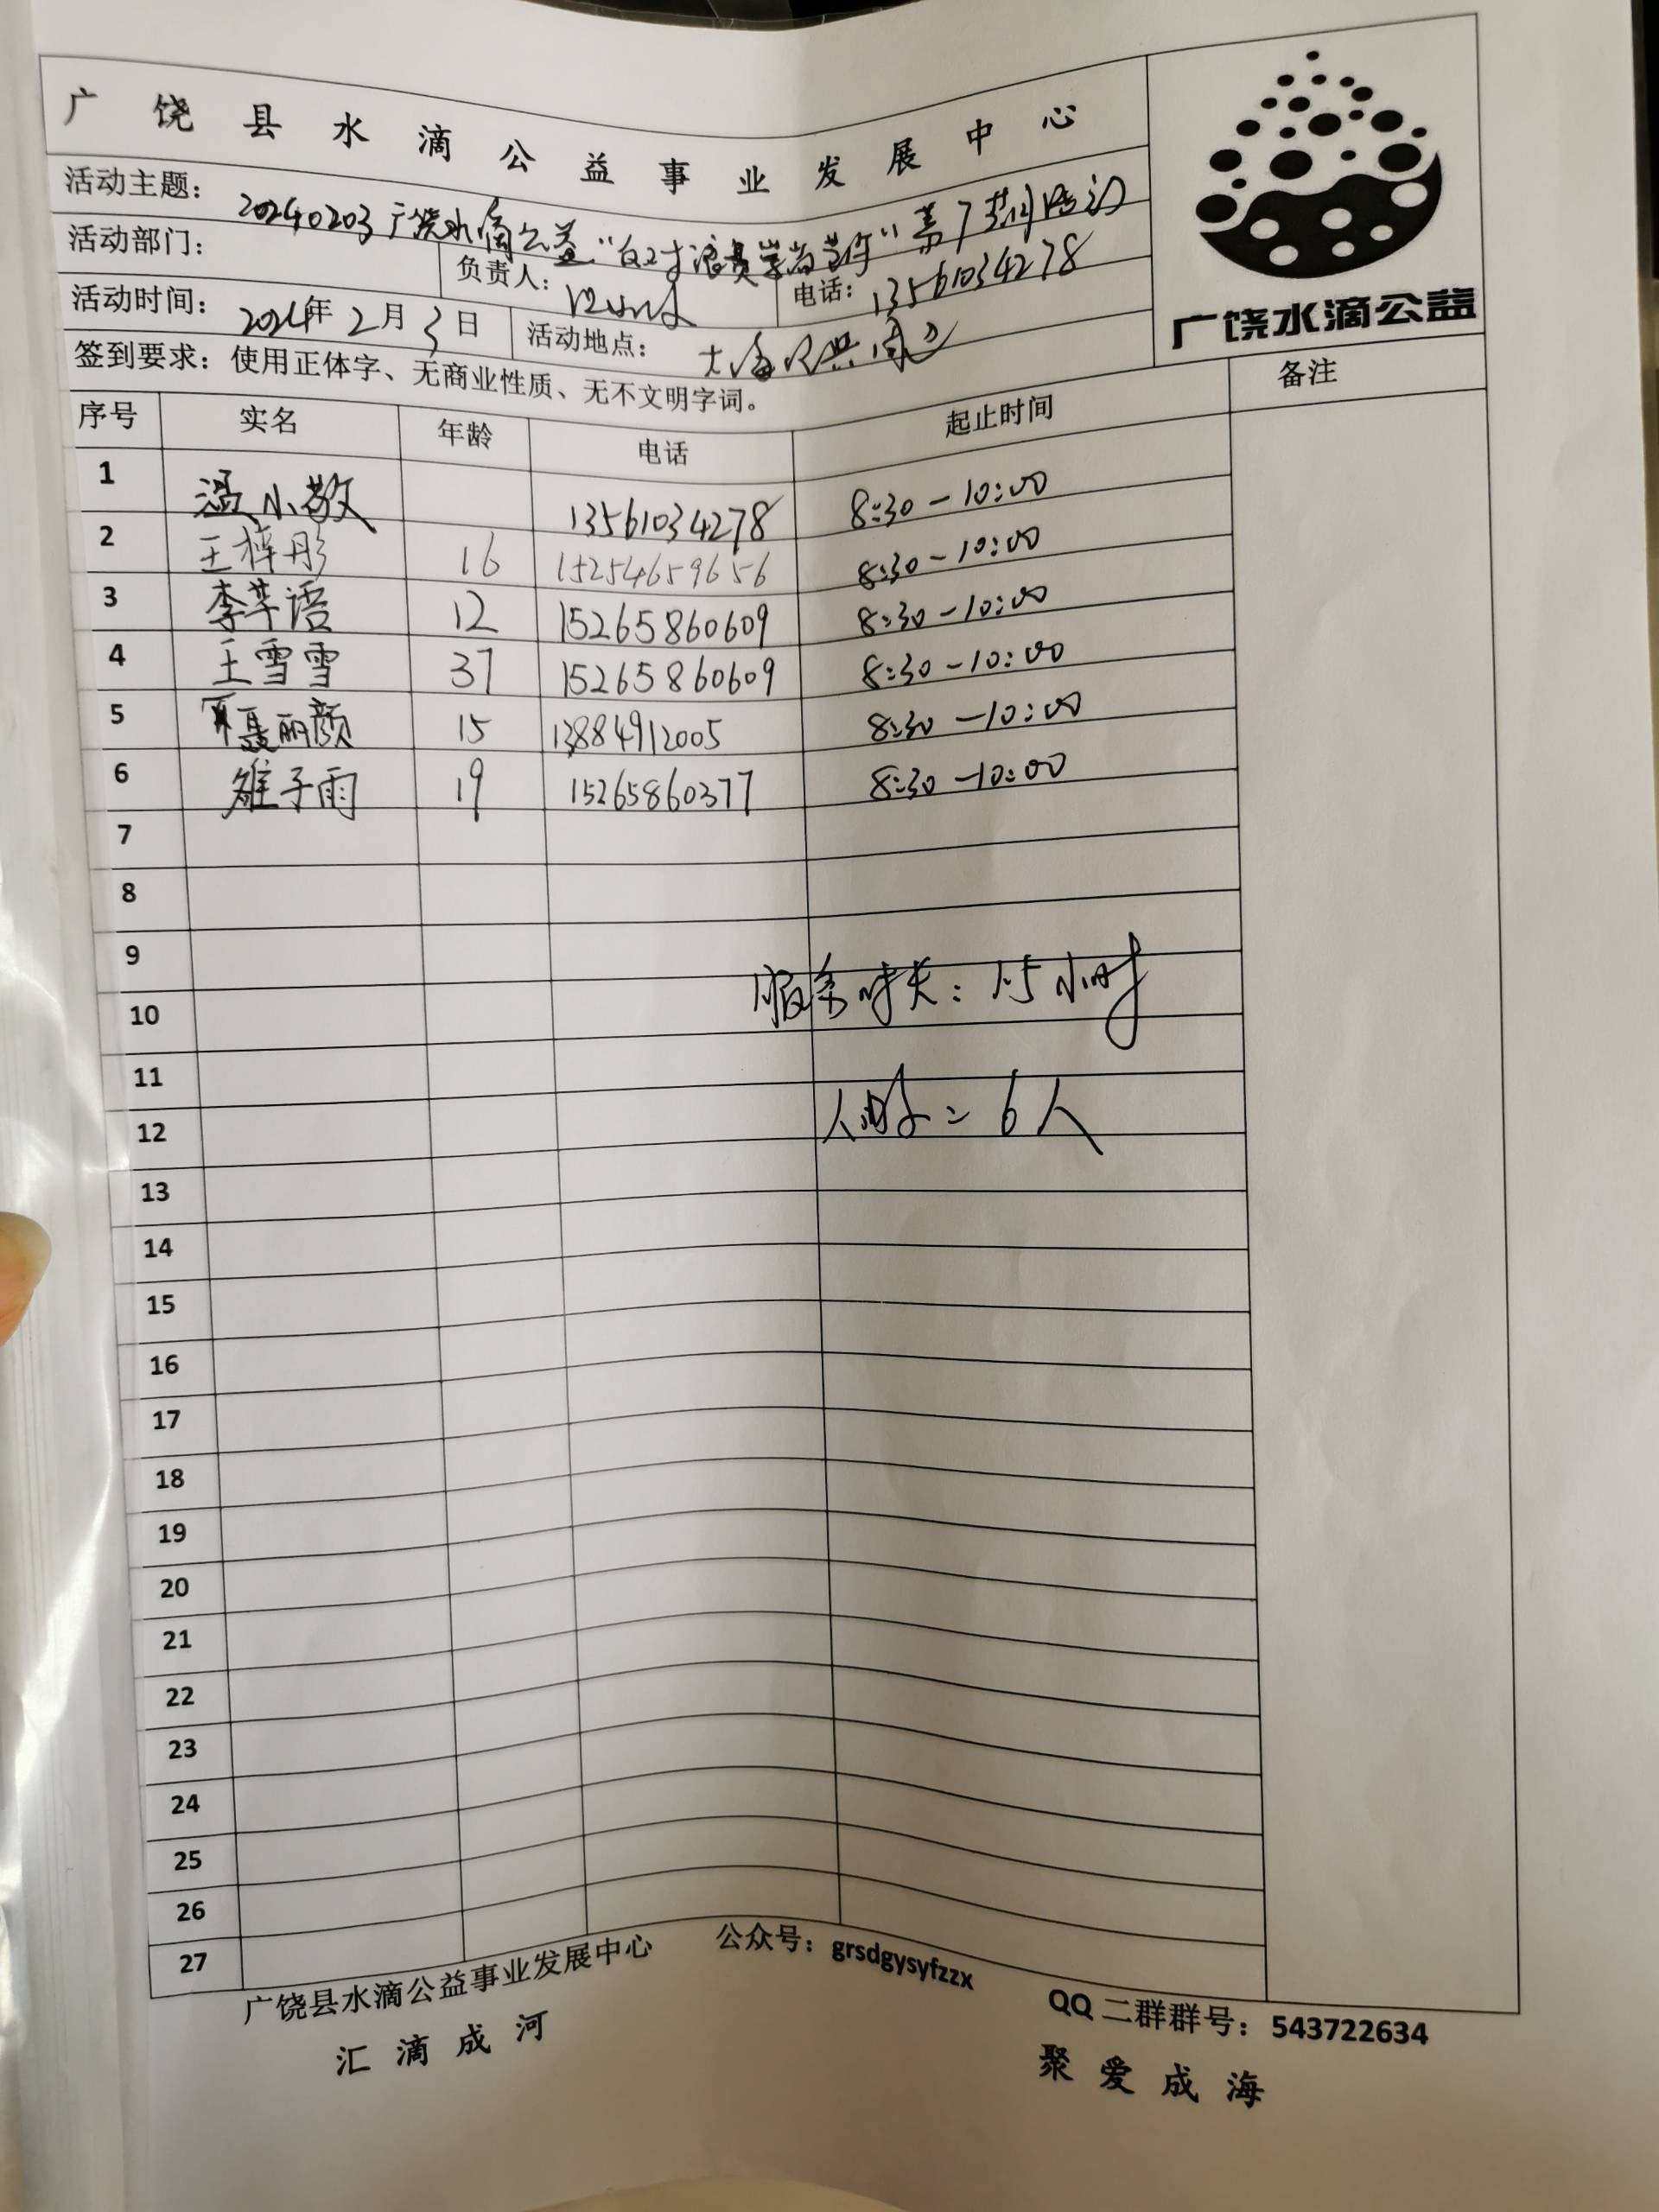 广饶县水滴公益事业发展中心
活动主题：20240203广饶水滴公益“反对浪费崇尚节俭”
活动部门： 负责人： 电话：13561034278
活动时间：2024年2月3日 活动地点：
签到要求：使用正体字、无商业性质、无不文明字词。
广饶水滴公益
序号 实名 年龄 电话 起止时间 备注
1 温小敬 13561034278 8:30-10:00
2 王梓彤 16 15254659656 8:30-10:00
3 李芊语 12 15265860609 8:30-10:00
4 王雪雪 37 15265860609 8:30-10:00
5 聂丽颜 15 13884912005 8:30-10:00
6 雒子雨 19 15265860377 8:30-10:00
7
8
9
服务时长：1.5小时
10
11
人数：6人
12
13
14
15
16
17
18
19
20
21
22
23
24
25
26
27
广饶县水滴公益事业发展中心 公众号：grsdgysyfzzx QQ二群群号：543722634
汇滴成河 聚爱成海